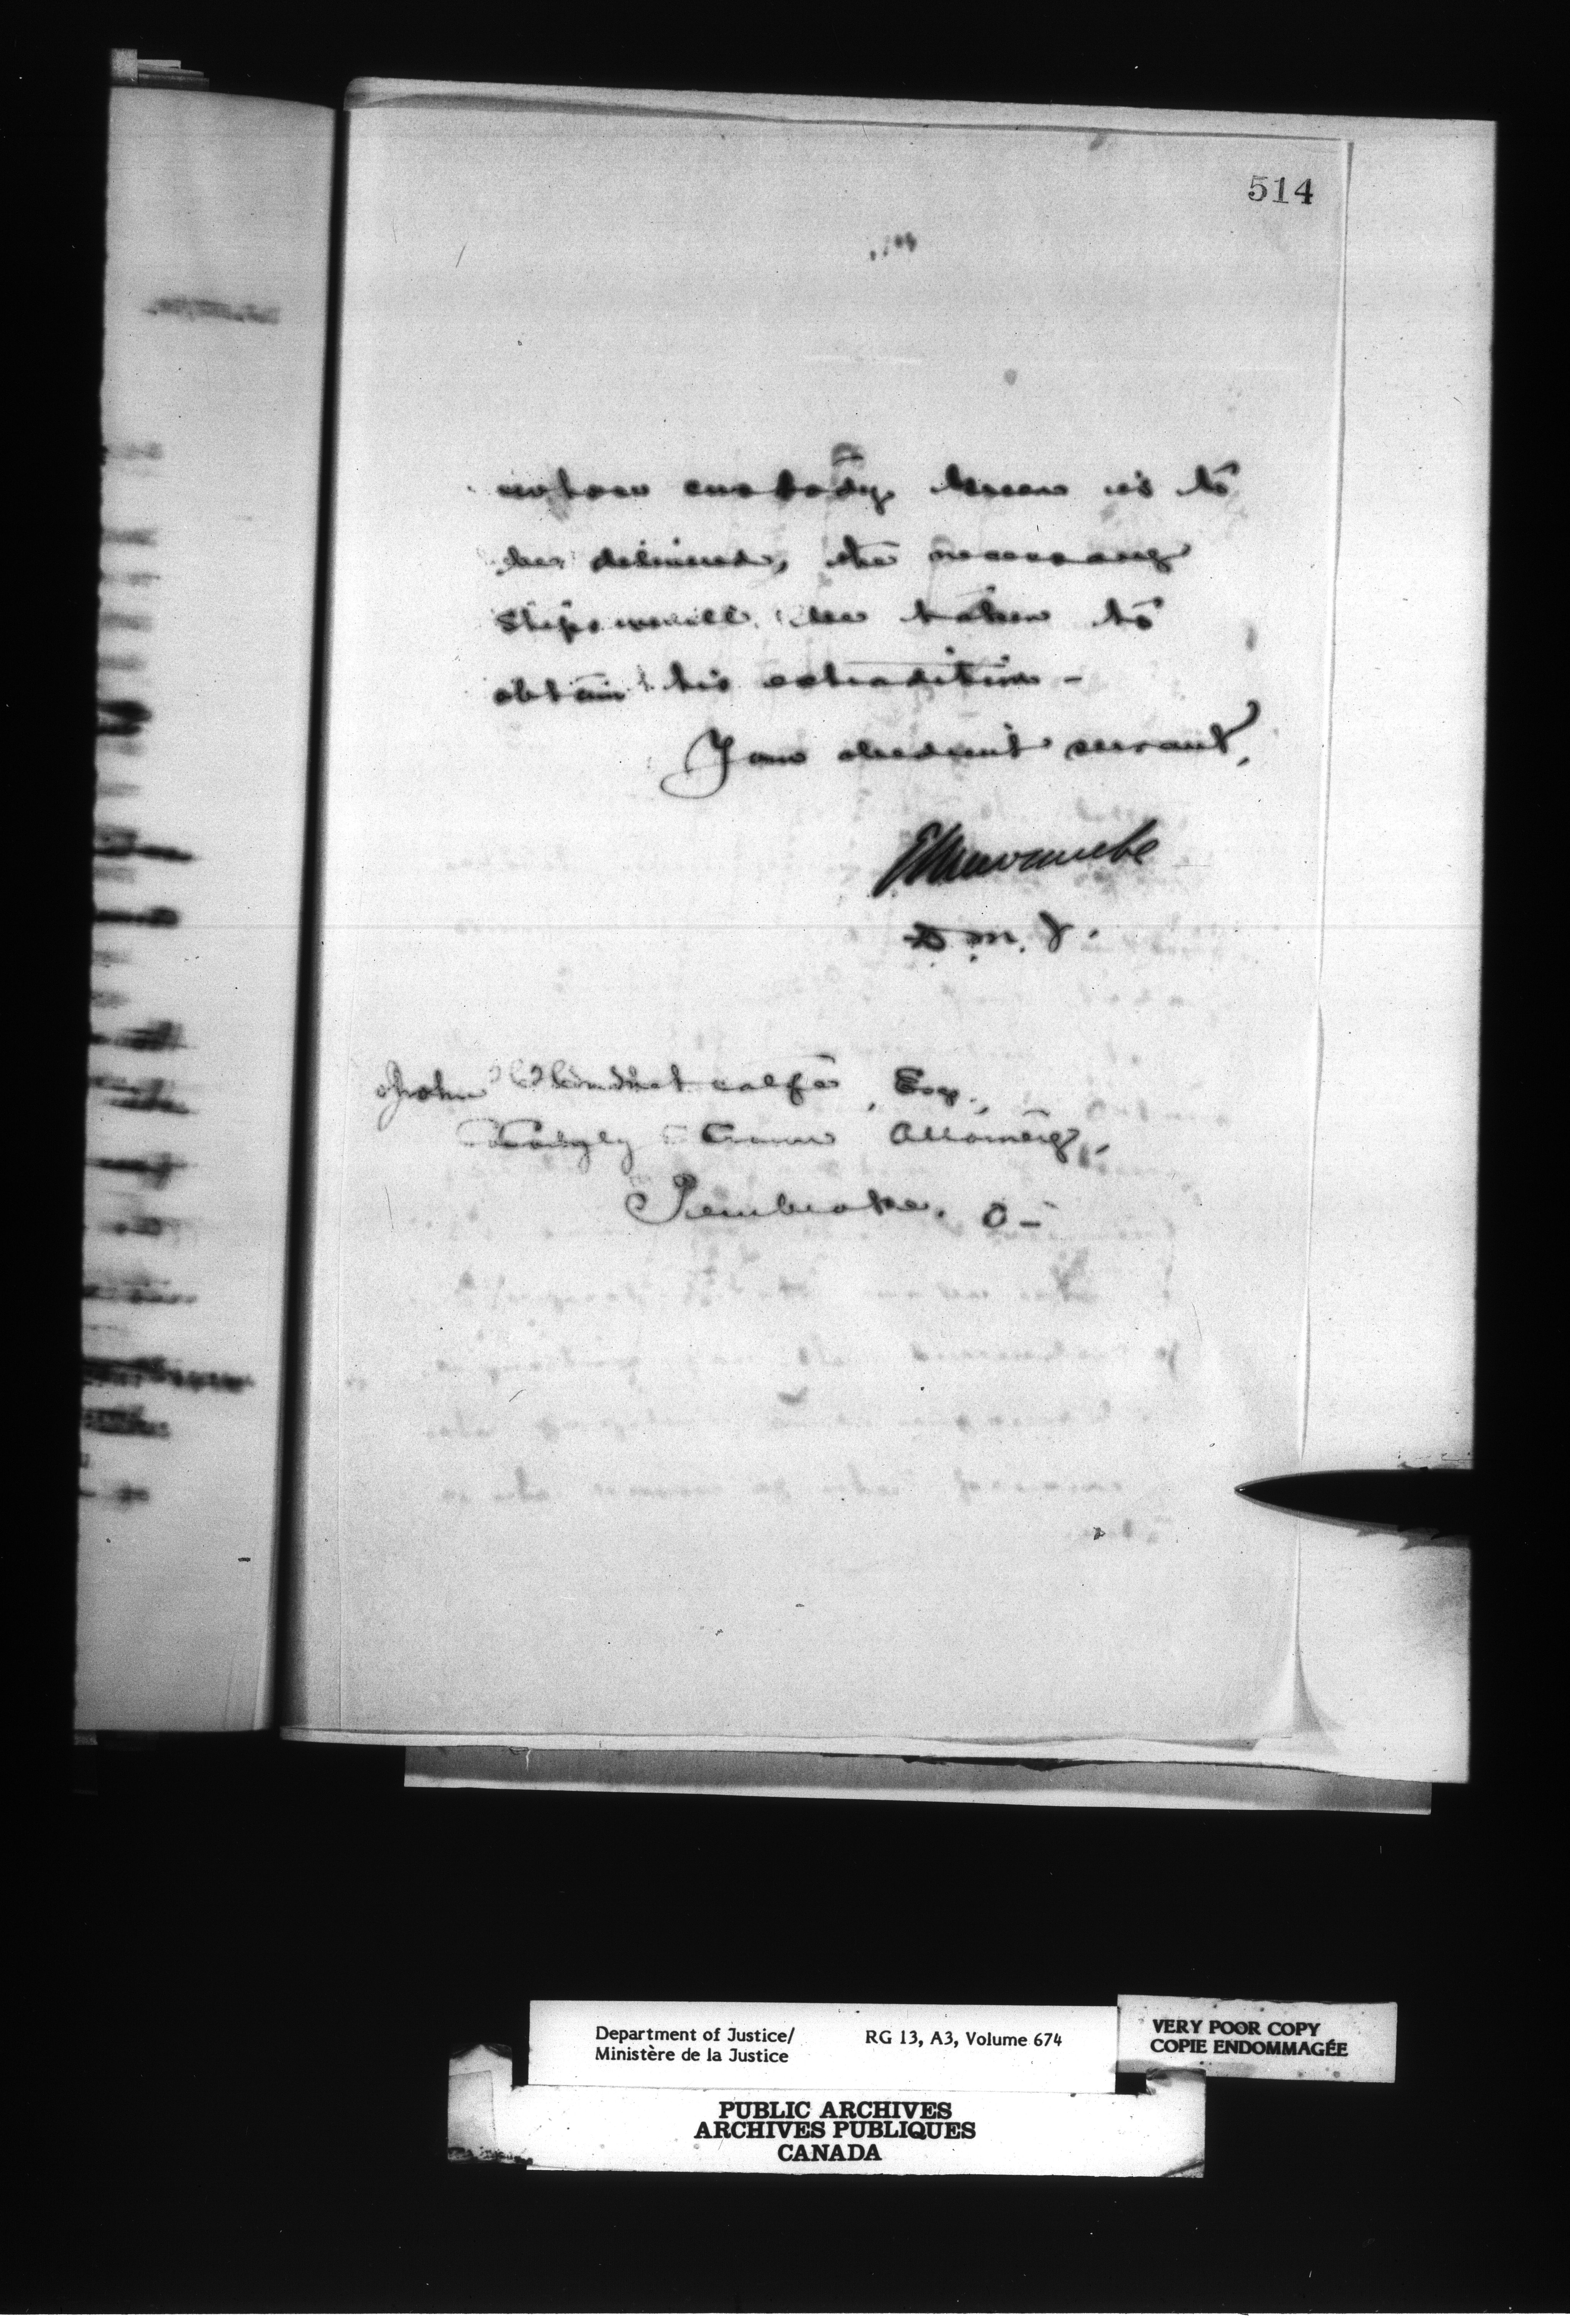 514
whose custody he is to
be delivered, the necessary
steps will be taken to
obtain his extradition —
Your obedient servant,
E L Newcombe
D. M. J.
John Metcalfe, Esq.,
County Crown Attorney,
Pembroke. O —
Department of Justice/ RG 13, A3, Volume 674
Ministère de la Justice
VERY POOR COPY
COPIE ENDOMMAGÉE
PUBLIC ARCHIVES
ARCHIVES PUBLIQUES
CANADA